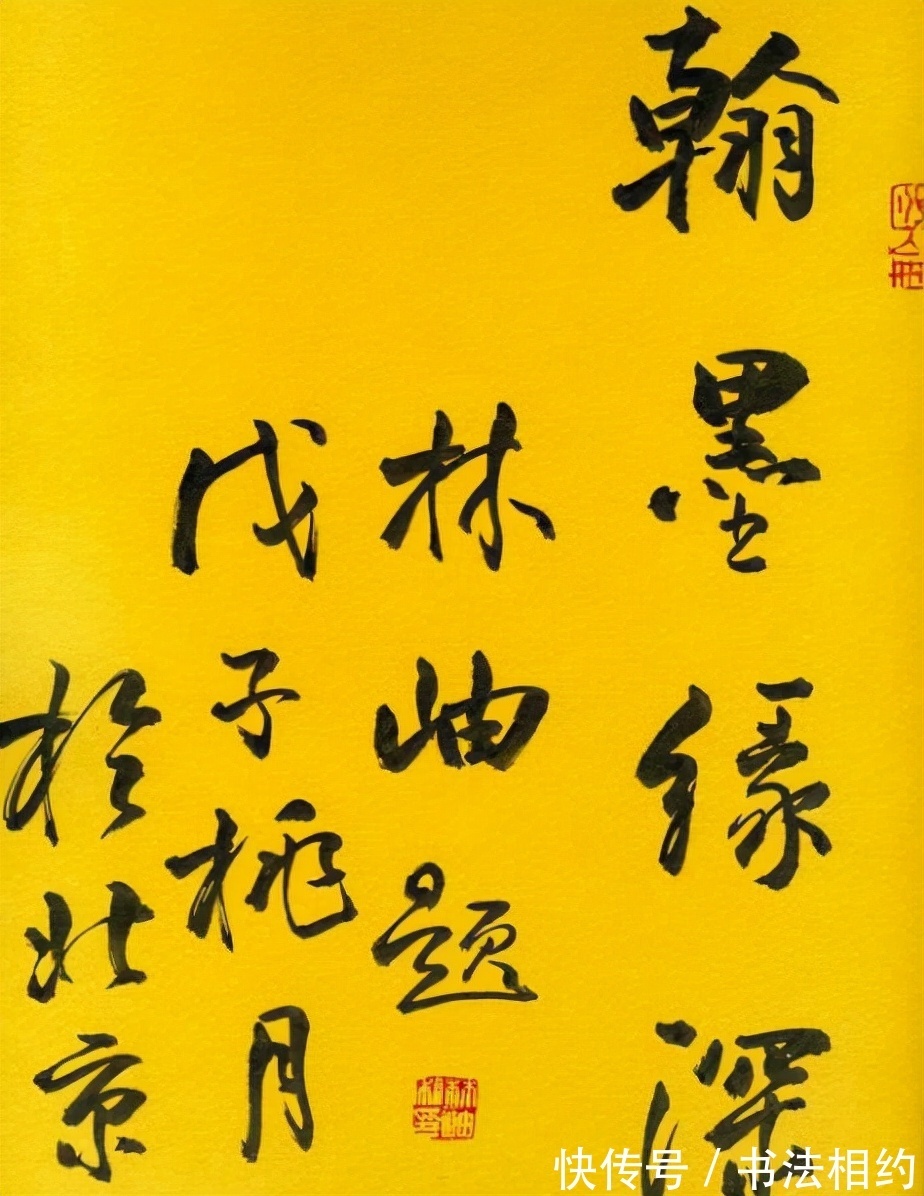 翰墨缘深
林岫题
戊子桃月
於北京
快传号 / 书法相约